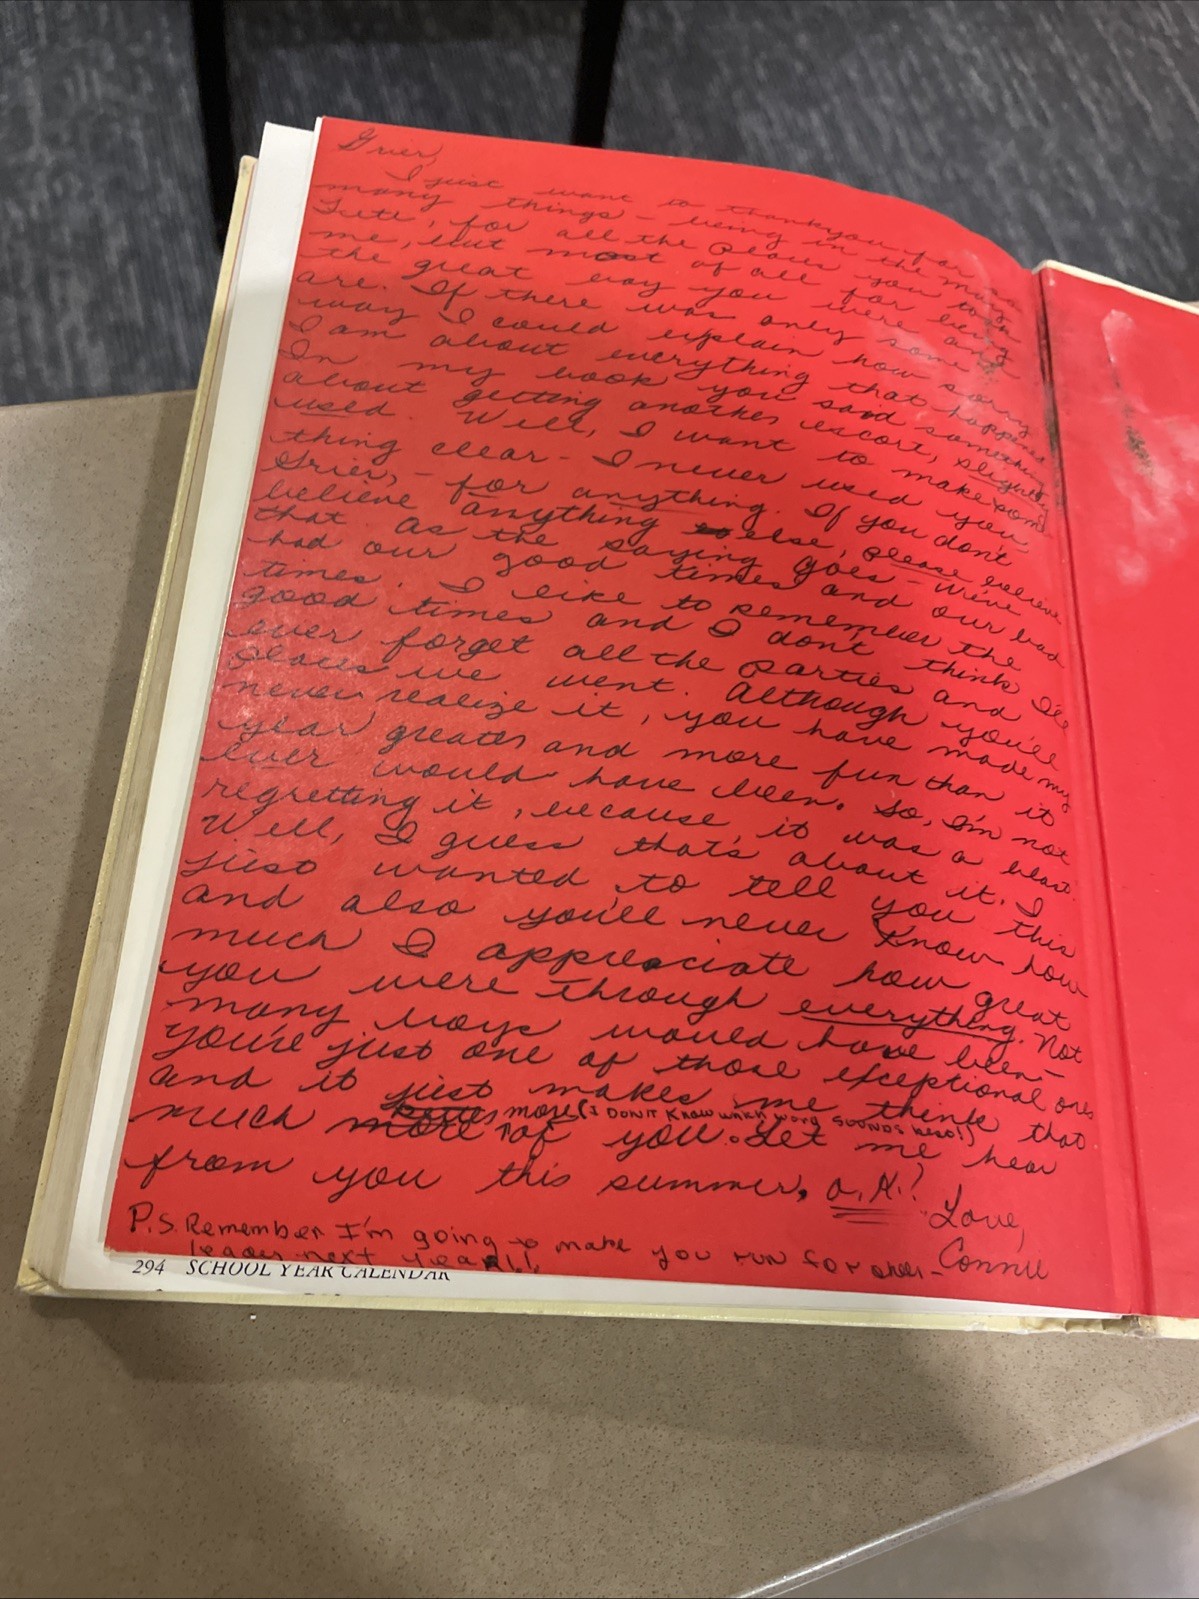 Grier,
I just want to thankyou for
many things - being in the miss
Tute, for all the places you took
me, but most of all for being
the great way you were and
are. If there was only some
way I could explain how sorry
I am about everything that happened
In my book you said something
about getting another escort, slightly
used. Well, I want to make some-
thing clear - I never used you
Grier, - for anything. If you don't
believe anything else, please believe
that. As the saying goes - We've
had our good times and our bad
times. I like to remember the
good times and I don't think I'll
ever forget all the parties and
places we went. Although you'll
never realize it, you have made my
year greater and more fun than it
ever would have been. So, I'm not
regretting it, because it was a blast.
Well, I guess that's about it. I
just wanted to tell you this
and also you'll never know how
much I appreciate how great
you were through everything. Not
many boys would have been -
you're just one of those exceptional ones
and it just makes me think that
much more (I DON'T KNOW WHICH WORD SOUNDS BEST!)
of you. Let me hear
from you this summer, O.K.?
Love,
Connie
P.S. Remember I'm going to make you run for cheer-
leader next year!!
294 SCHOOL YEAR CALENDAR